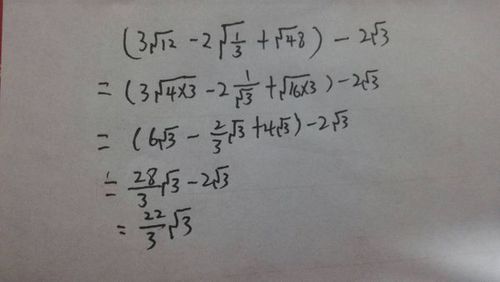 (3√12 - 2√(1/3) + √48) - 2√3
= (3√(4×3) - 2 1/√3 + √(16×3)) - 2√3
= (6√3 - 2/3 √3 + 4√3) - 2√3
= 28/3 √3 - 2√3
= 22/3 √3